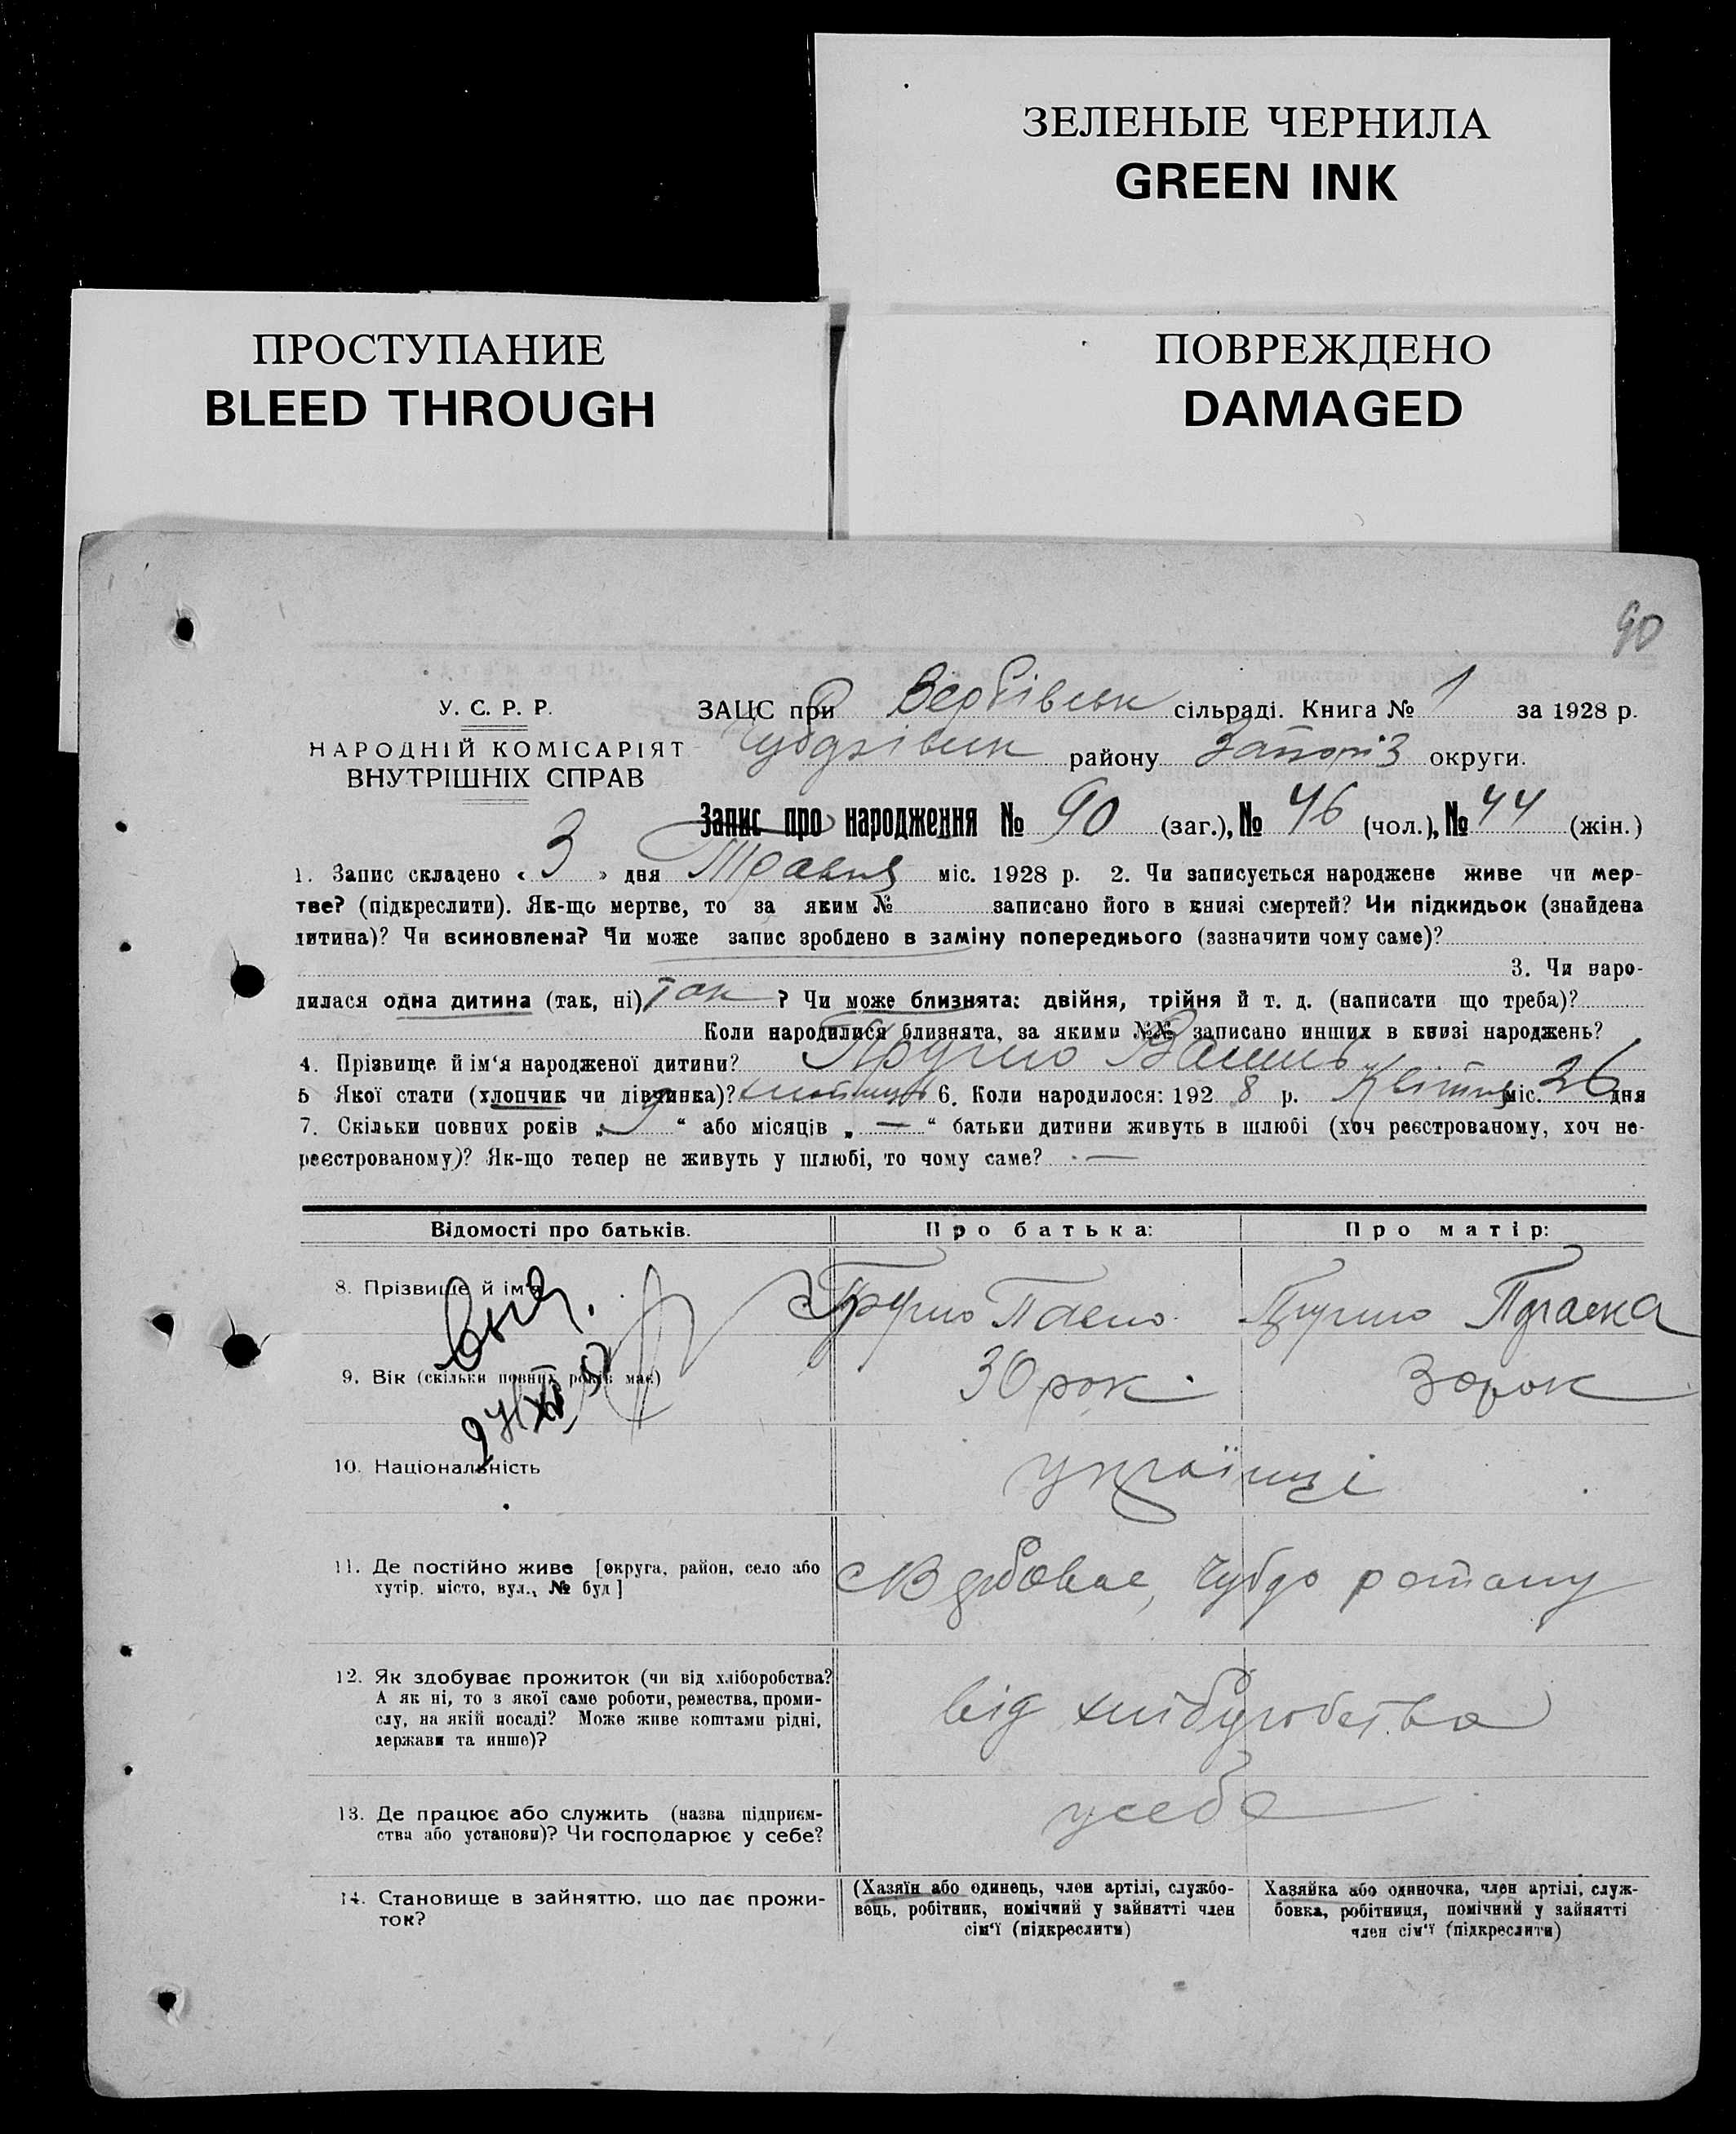 ЗЕЛЕНЫЕ ЧЕРНИЛА
GREEN INK
ПРОСТУПАНИЕ
BLEED THROUGH
ПОВРЕЖДЕНО
DAMAGED
90
У. С. Р. Р.
НАРОДНІЙ КОМІСАРІЯТ
ВНУТРІШНІХ СПРАВ
ЗАЦС при Вербівськ сільраді. Книга № 1 за 1928 р.
району Запоріз округи.
Запис про народження № 90 (заг.), № 46 (чол.), № 44 (жін.)
1. Запис складено « 3 » дня Травня міс. 1928 р. 2. Чи записується народжене живе чи мер-
тве? (підкреслити). Як-що мертве, то за яким № записано його в книзі смертей? Чи підкидьок (знайдена
дитина)? Чи всиновлена? Чи може запис зроблено в заміну попереднього (зазначити чому саме)?
3. Чи наро-
дилася одна дитина (так, ні) так ? Чи може близнята: двійня, трійня й т. д. (написати що треба)?
Коли народилися близнята, за якими №№ записано инших в книзі народжень?
4. Прізвище й ім'я народженої дитини?
5 Якої стати (хлопчик чи дівчинка)? хлопчик 6. Коли народилося: 192 8 р. Квітня міс. 26 дня
7. Скільки повних років „ 9 “ або місяців „ — “ батьки дитини живуть в шлюбі (хоч реєстрованому, хоч не-
реєстрованому)? Як-що тепер не живуть у шлюбі, то чому саме? —
Відомості про батьків.
Про батька:
Про матір:
8. Прізвище й ім'я
9. Вік (скільки повних років має)
30 рок
30 рок
10. Національність
українці
11. Де постійно живе [округа, район, село або
хутір, місто, вул., № буд]
12. Як здобуває прожиток (чи від хліборобства?
А як ні, то з якої саме роботи, ремества, проми-
слу, на якій посаді? Може живе коштами рідні,
держави та инше)?
від хліборобства
13. Де працює або служить (назва підприєм-
ства або установи)? Чи господарює у себе?
у себе
14. Становище в зайняттю, що дає прожи-
ток?
(Хазяїн або одинець, член артілі, службо-
вець, робітник, помічний у зайнятті член
сім'ї (підкреслити)
Хазяйка або одиночка, член артілі, служ-
бовка, робітниця, помічний у зайнятті
член сім'ї (підкреслити)